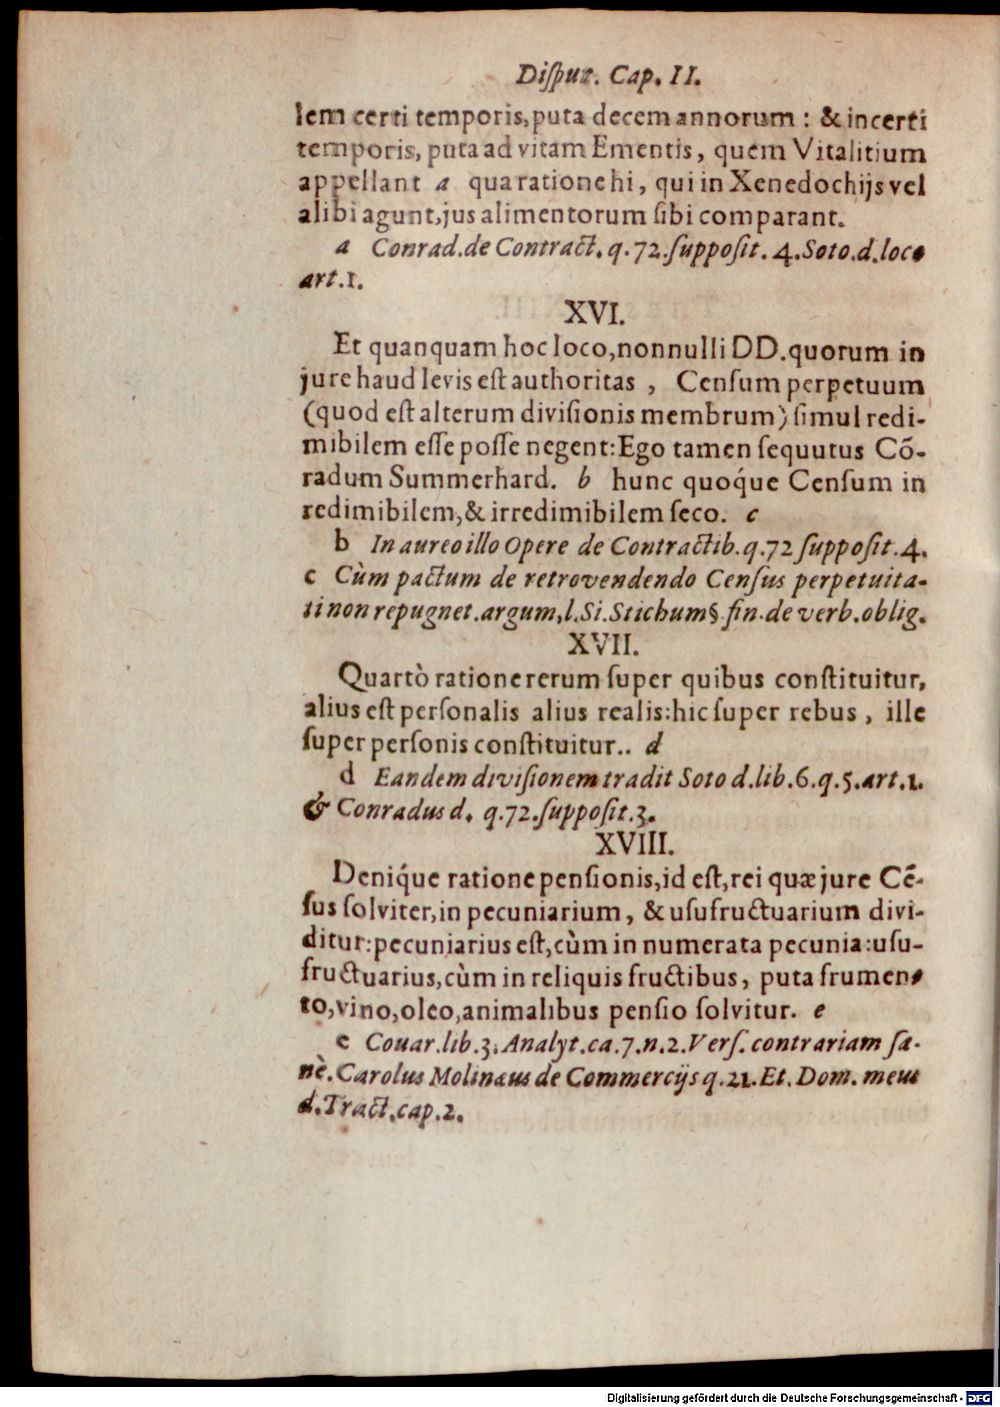 Diſput. Cap. II.
lem certi temporis, puta decem annorum : & incerti
temporis, puta ad vitam Ementis, quem Vitalitium
appellant a qua ratione hi, qui in Xenedochijs vel
alibi agunt, jus alimentorum ſibi comparant.
a Conrad. de Contract. q. 72. ſuppoſit. 4. Soto. d. loco
art. 1.
XVI.
Et quanquam hoc loco, nonnulli DD. quorum in
jure haud levis eſt authoritas , Cenſum perpetuum
(quod eſt alterum diviſionis membrum) ſimul redi-
mibilem eſſe poſſe negent: Ego tamen ſequutus Cõ-
radum Summerhard. b hunc quoq́ue Cenſum in
redimibilem, & irredimibilem ſeco. c
b In aureo illo Opere de Contractib. q. 72 ſuppoſit. 4.
c Cùm pactum de retrovendendo Cenſus perpetuita-
ti non repugnet. argum, l. Si. Stichum § fin. de verb. oblig.
XVII.
Quartò ratione rerum ſuper quibus conſtituitur,
alius eſt perſonalis alius realis: hic ſuper rebus , ille
ſuper perſonis conſtituitur.. d
d Eandem diviſionem tradit Soto d. lib. 6. q. 5. art. 1.
& Conradus d. q. 72. ſuppoſit. 3.
XVIII.
Deniq́ue ratione penſionis, id eſt, rei quæ jure Cẽ-
ſus ſolviter, in pecuniarium, & uſufructuarium divi-
ditur: pecuniarius eſt, cùm in numerata pecunia: uſu-
fructuarius, cùm in reliquis fructibus, puta frumen-
to, vino, oleo, animalibus penſio ſolvitur. e
e Couar. lib. 3. Analyt. ca. 7. n. 2. Verſ. contrariam ſa-
nè. Carolus Molinæus de Commercijs q. 21. Et. Dom. meus
d. Tract. cap. 2.
Digitalisierung gefördert durch die Deutsche Forschungsgemeinschaft - DFG